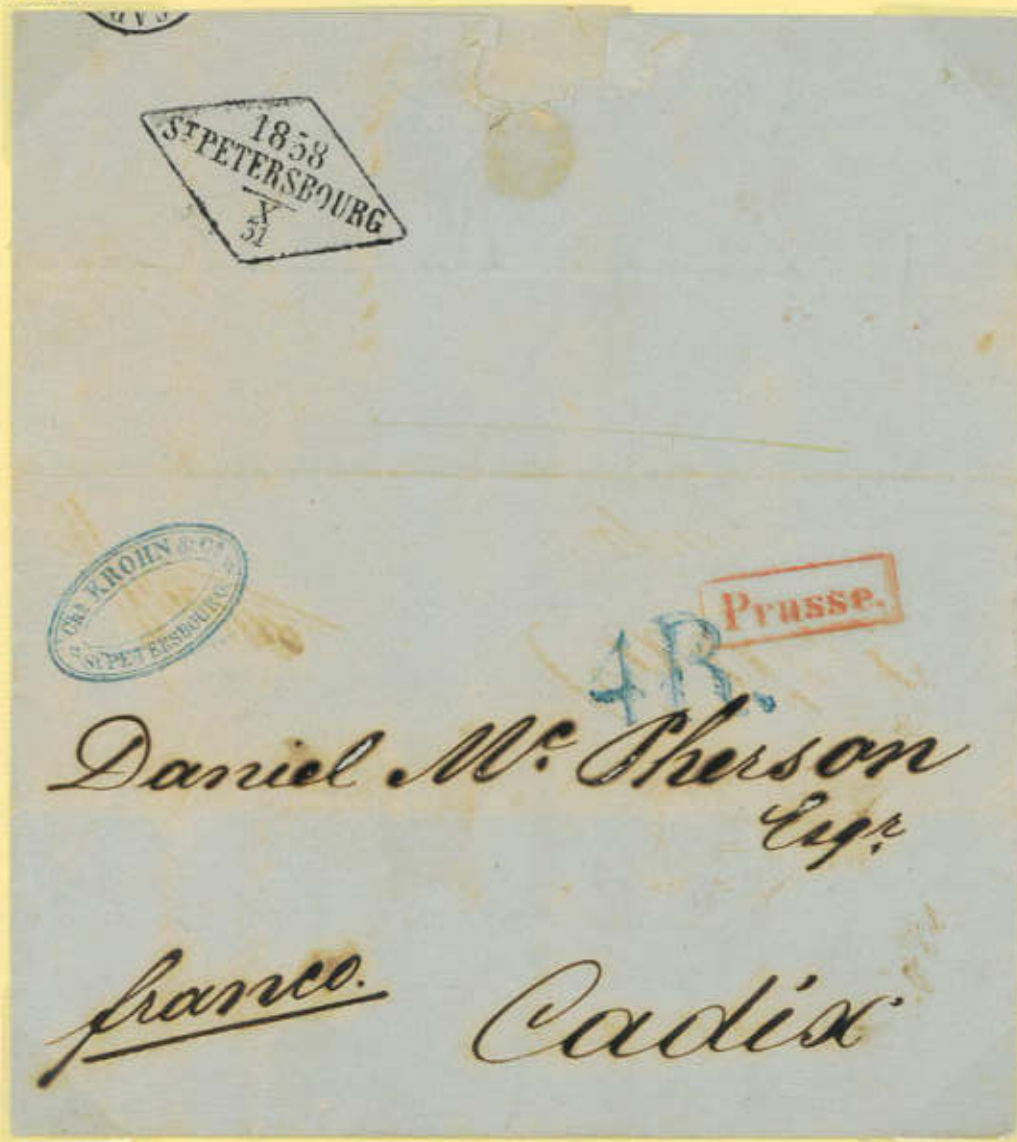 CAD
1858
ST PETERSBOURG
X
31
CRN KROHN & Co
ST PETERSBOURG
Prusse.
4 R.
Daniel Mc. Pherson
Esqr
franco.
Cadix